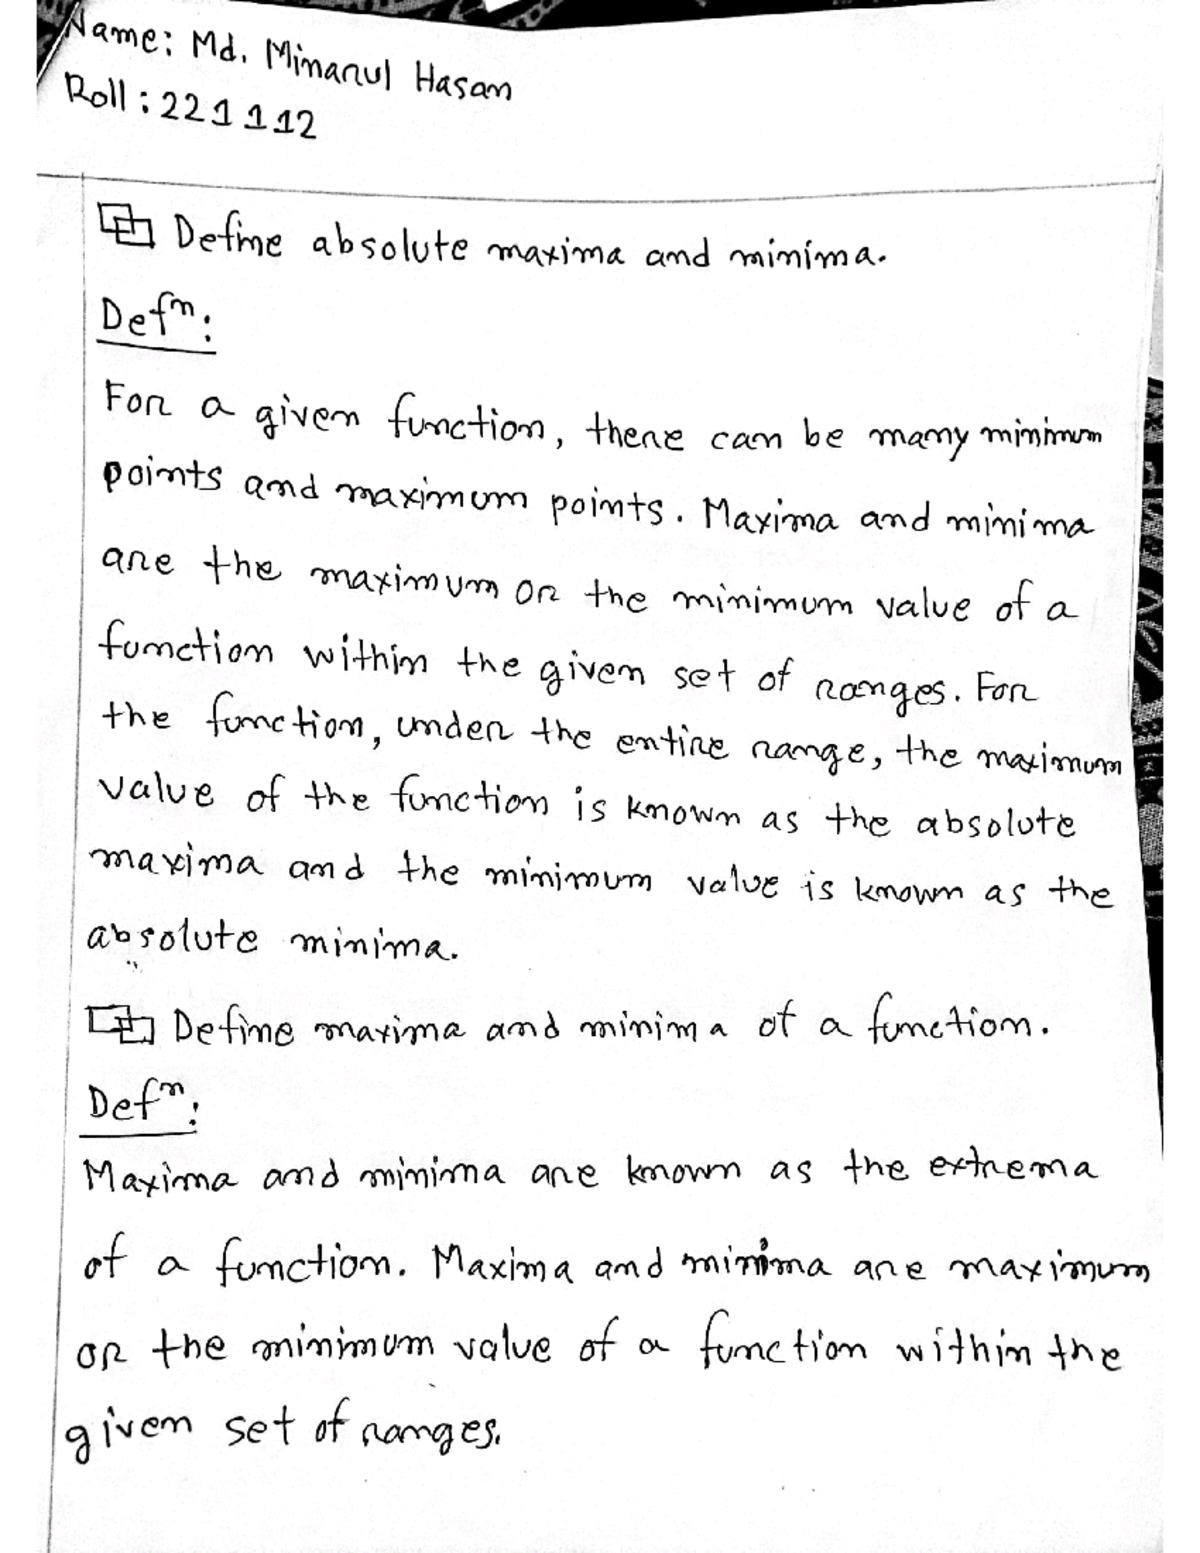 Name: Md. Minarul Hasan
Roll: 221112
Define absolute maxima and minima.
Defⁿ:
For a given function, there can be many minimum
points and maximum points. Maxima and minima
are the maximum or the minimum value of a
function within the given set of ranges. For
the function, under the entire range, the maximum
value of the function is known as the absolute
maxima and the minimum value is known as the
absolute minima.
Define maxima and minima of a function.
Defⁿ:
Maxima and minima are known as the extrema
of a function. Maxima and minima are maximum
or the minimum value of a function within the
given set of ranges.